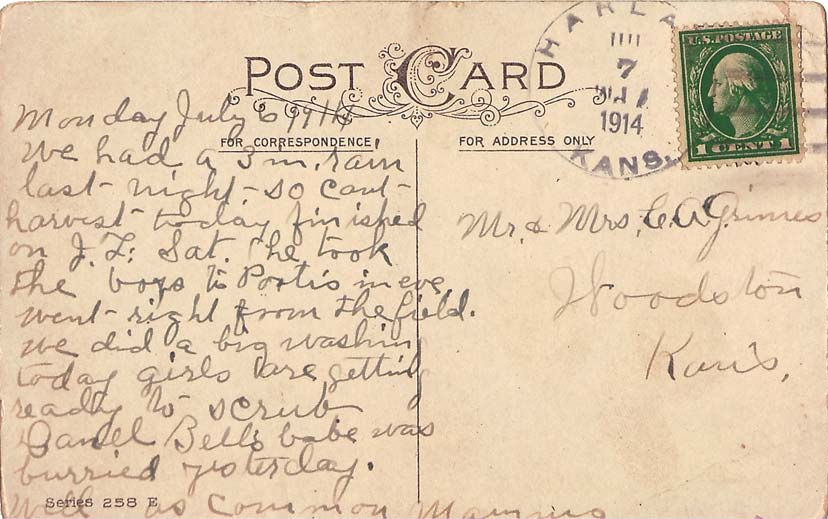 HARLA
JUL
7
1914
KANS.
U.S. POSTAGE
1 CENT 1
POST CARD
FOR CORRESPONDENCE
FOR ADDRESS ONLY
Monday July 6 1914
We had a 3 in. rain
last night so cant
harvest today finished
on J. F. Sat. he took
the boys to Portis in eve
went right from the field.
we did a big washing
today girls are getting
ready to scrub
Daniel Bells babe was
burried yesterday.
Well as common Mamma
Series 258 E
Mr. & Mrs. C. A. Grimes
Woodston
Kans,